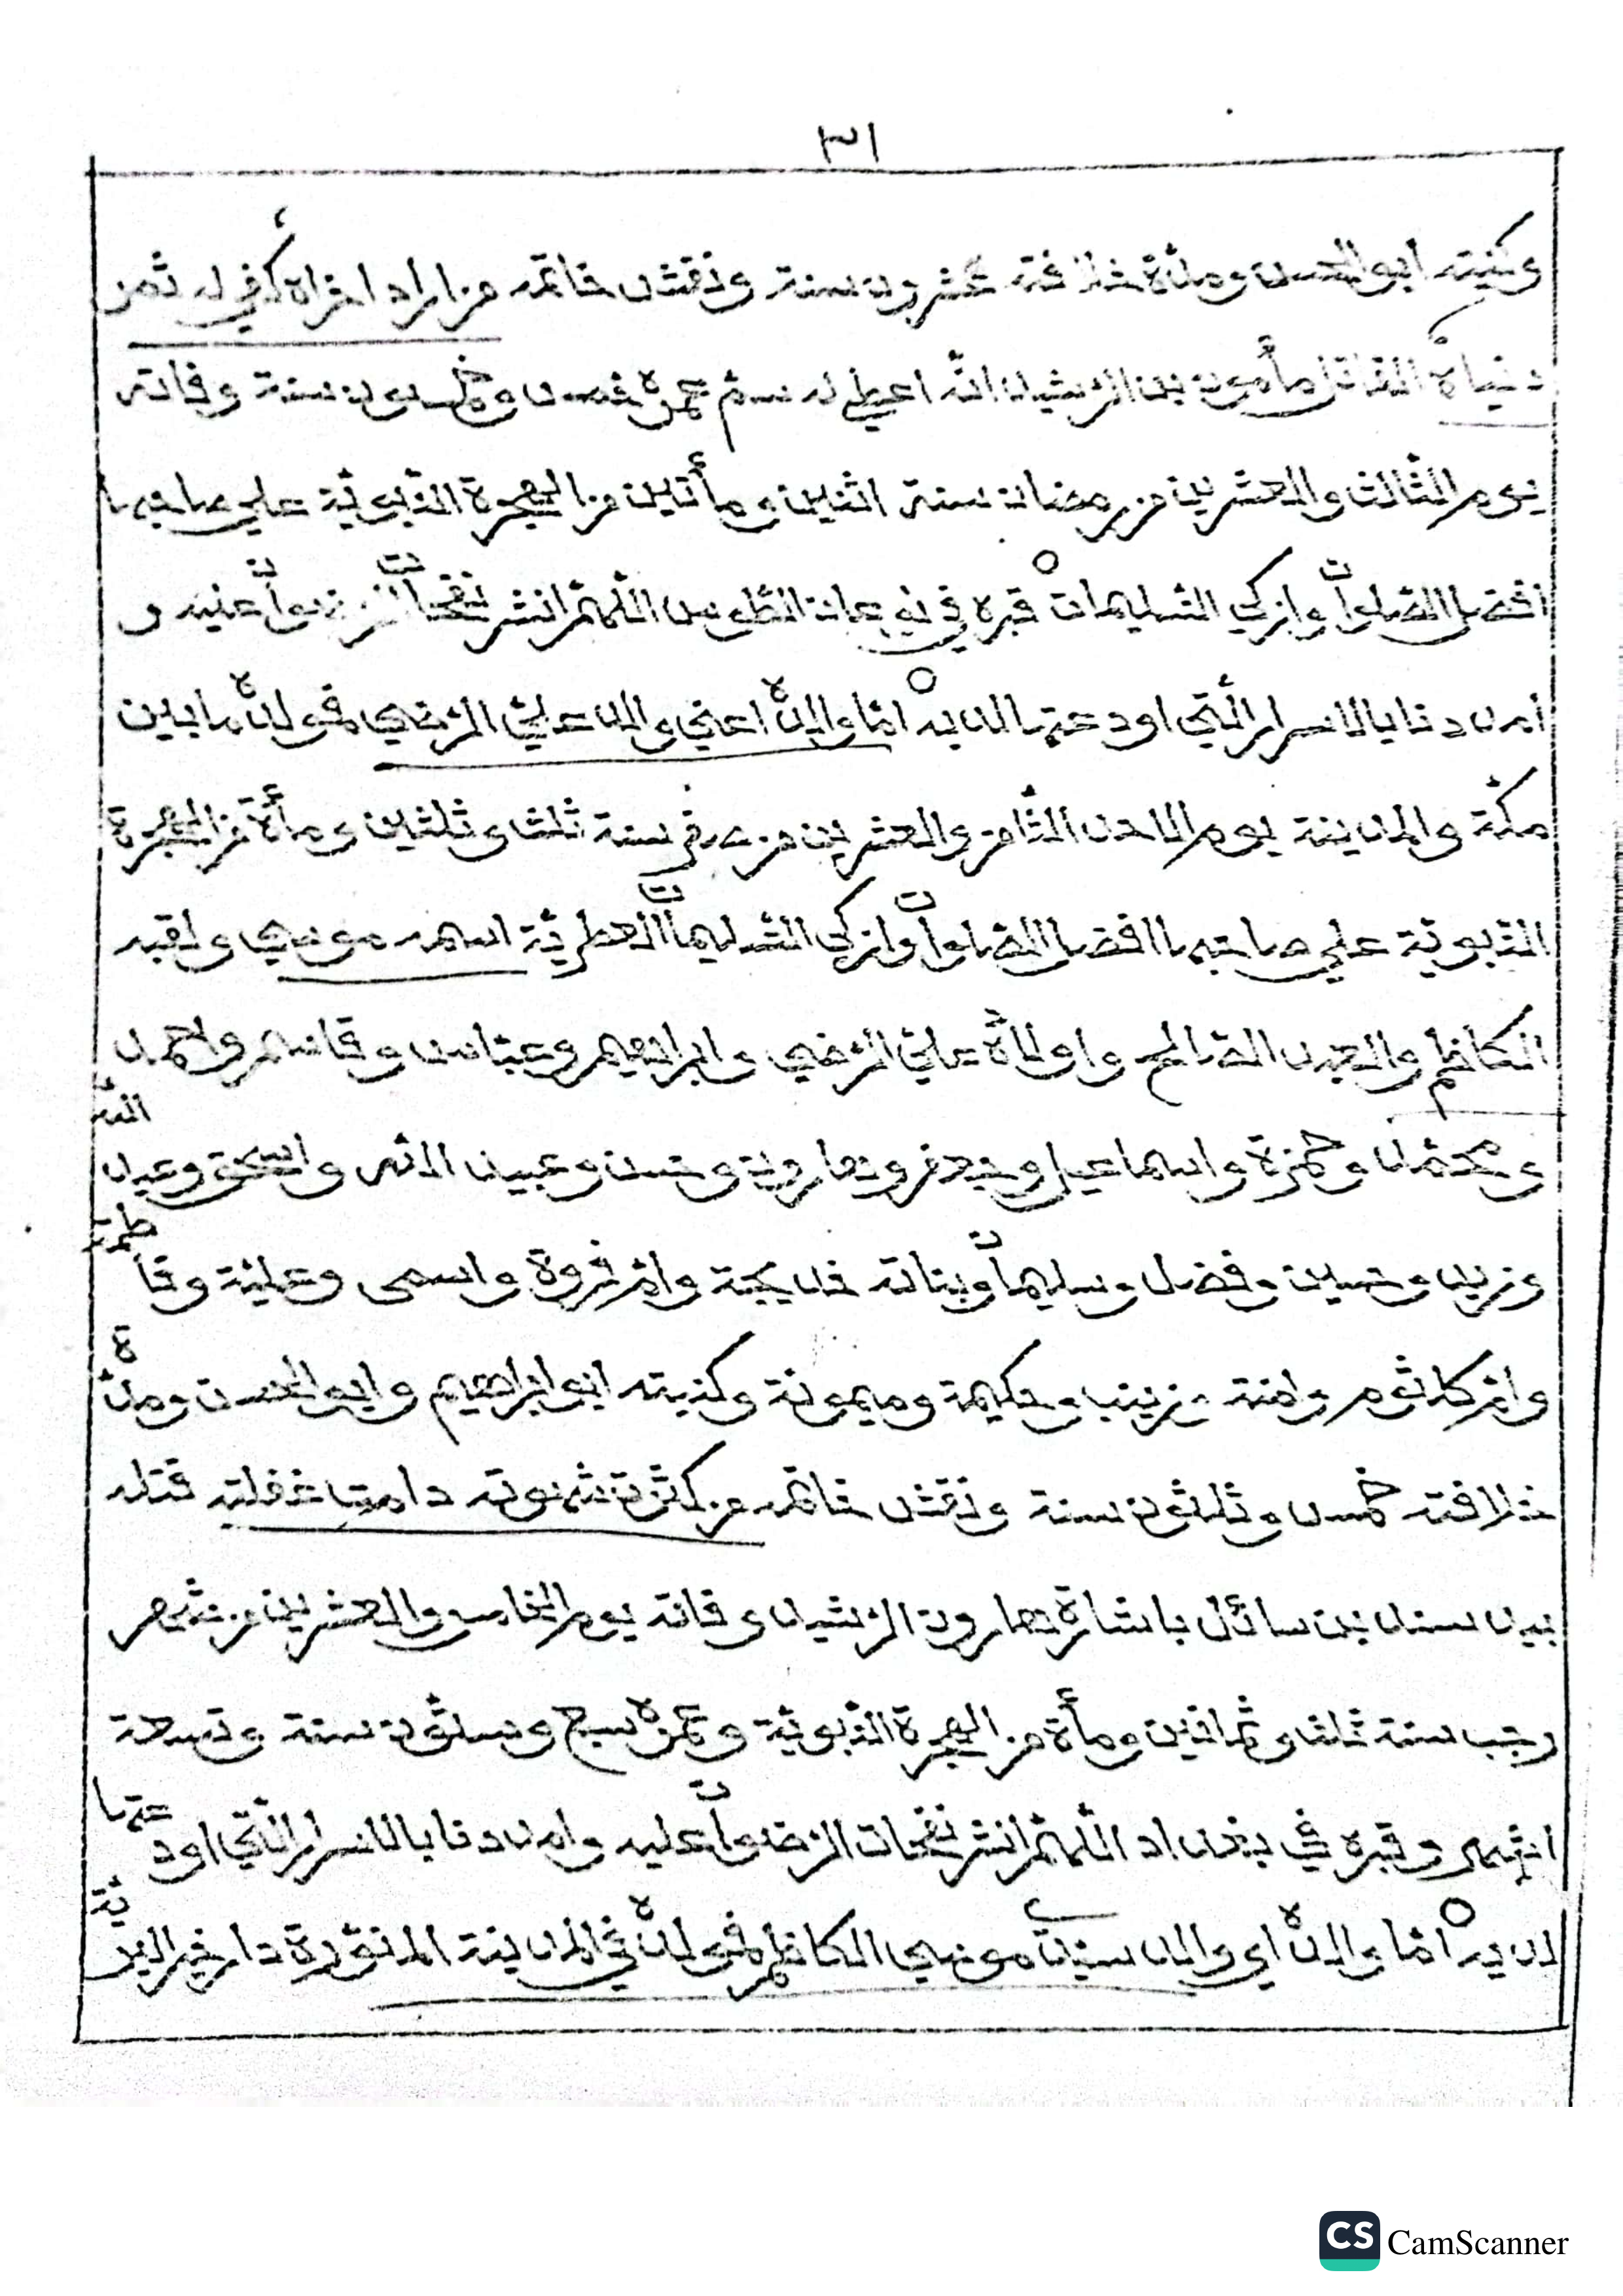 ٣١
وكنيته ابو الحسن ومدّة خلافته عشرون سنة ونقش خاتمه من اراد اخراه كفي له ثمن
دنياه القاتل مأمون بن الرّشيد انّه اعطي له سمّ عمره خمس وخمسون سنة وفاته
يوم الثّالث والعشرين من رمضان سنة اثنين ومأتين من الهجرة النّبويّة علي صاحبها
افضل الصّلوات وازكي التسليمات قبره في نوعان الطّوس اللّهمّ انشر نفحات الرّضوان عليه و
أمددنا بالاسرار الّتي اودعتها لديه امّا والده اعني والد عليّ الرّضي فمولده ما بين
مكّة والمدينة يوم الاحد الثّامن والعشرين من صفر سنة ثلث وثلثين ومأة من الهجرة
النّبويّة علي صاحبها افضل الصّلوات وازكي التّسليمات العطريّة اسمه موسي ولقبه
الكاظم والعبد الصّالح واولاده عليّ الرّضي وابراهيم وعبّاس وقاسم واحمد
ومحمّد وحمزة واسماعيل وجعفر وهارون وحسن وعبيد اللّه واسحق وعبد اللّه
وزيد وحسين وفضل وسليمان وبناته خديجة وامّ فروة واسمى وعليّة وفاطمة
وامّ كلثوم وامنة وزينب وحكيمة وميمونة وكنيته ابو ابراهيم وابو الحسن ومدّة
خلافته خمس وثلثون سنة ونقش خاتمه من كثرت شهوته دامت غفلته قتله
بيد سند بن سائل باشارة هارون الرّشيد وفاته يوم الخامس والعشرين من شهر
رجب سنة ثلث وثمانين ومأة من الهجرة النّبويّة وعمره سبع وستّون سنة وتسعة
اشهر وقبره في بغداد اللّهمّ انشر نفحات الرّضوان عليه وامددنا بالاسرار الّتي اودعتها
لديه امّا والده اي والد سيّدي موسي الكاظم فمولده في المدينة المنوّرة دار خير البريّة
CS CamScanner